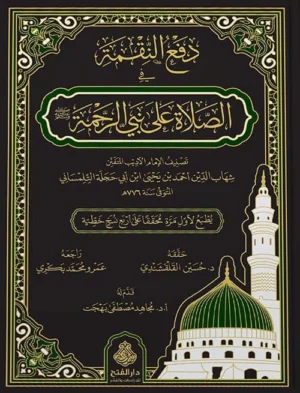 دفع النقمة
في
الصلاة على نبي الرحمة ﷺ
تصنيف الإمام الأديب المتفنن
شهاب الدين أحمد بن يحيى ابن أبي حجلة التلمساني
المتوفى سنة ٧٧٦هـ
يُطبع لأول مرة محققا على أربع نسخ خطية
حققه
د. حسين القلقشندي
راجعه
عمرو محمد بكيري
قدم له
أ.د. مجاهد مصطفى بهجت
دار الفتح